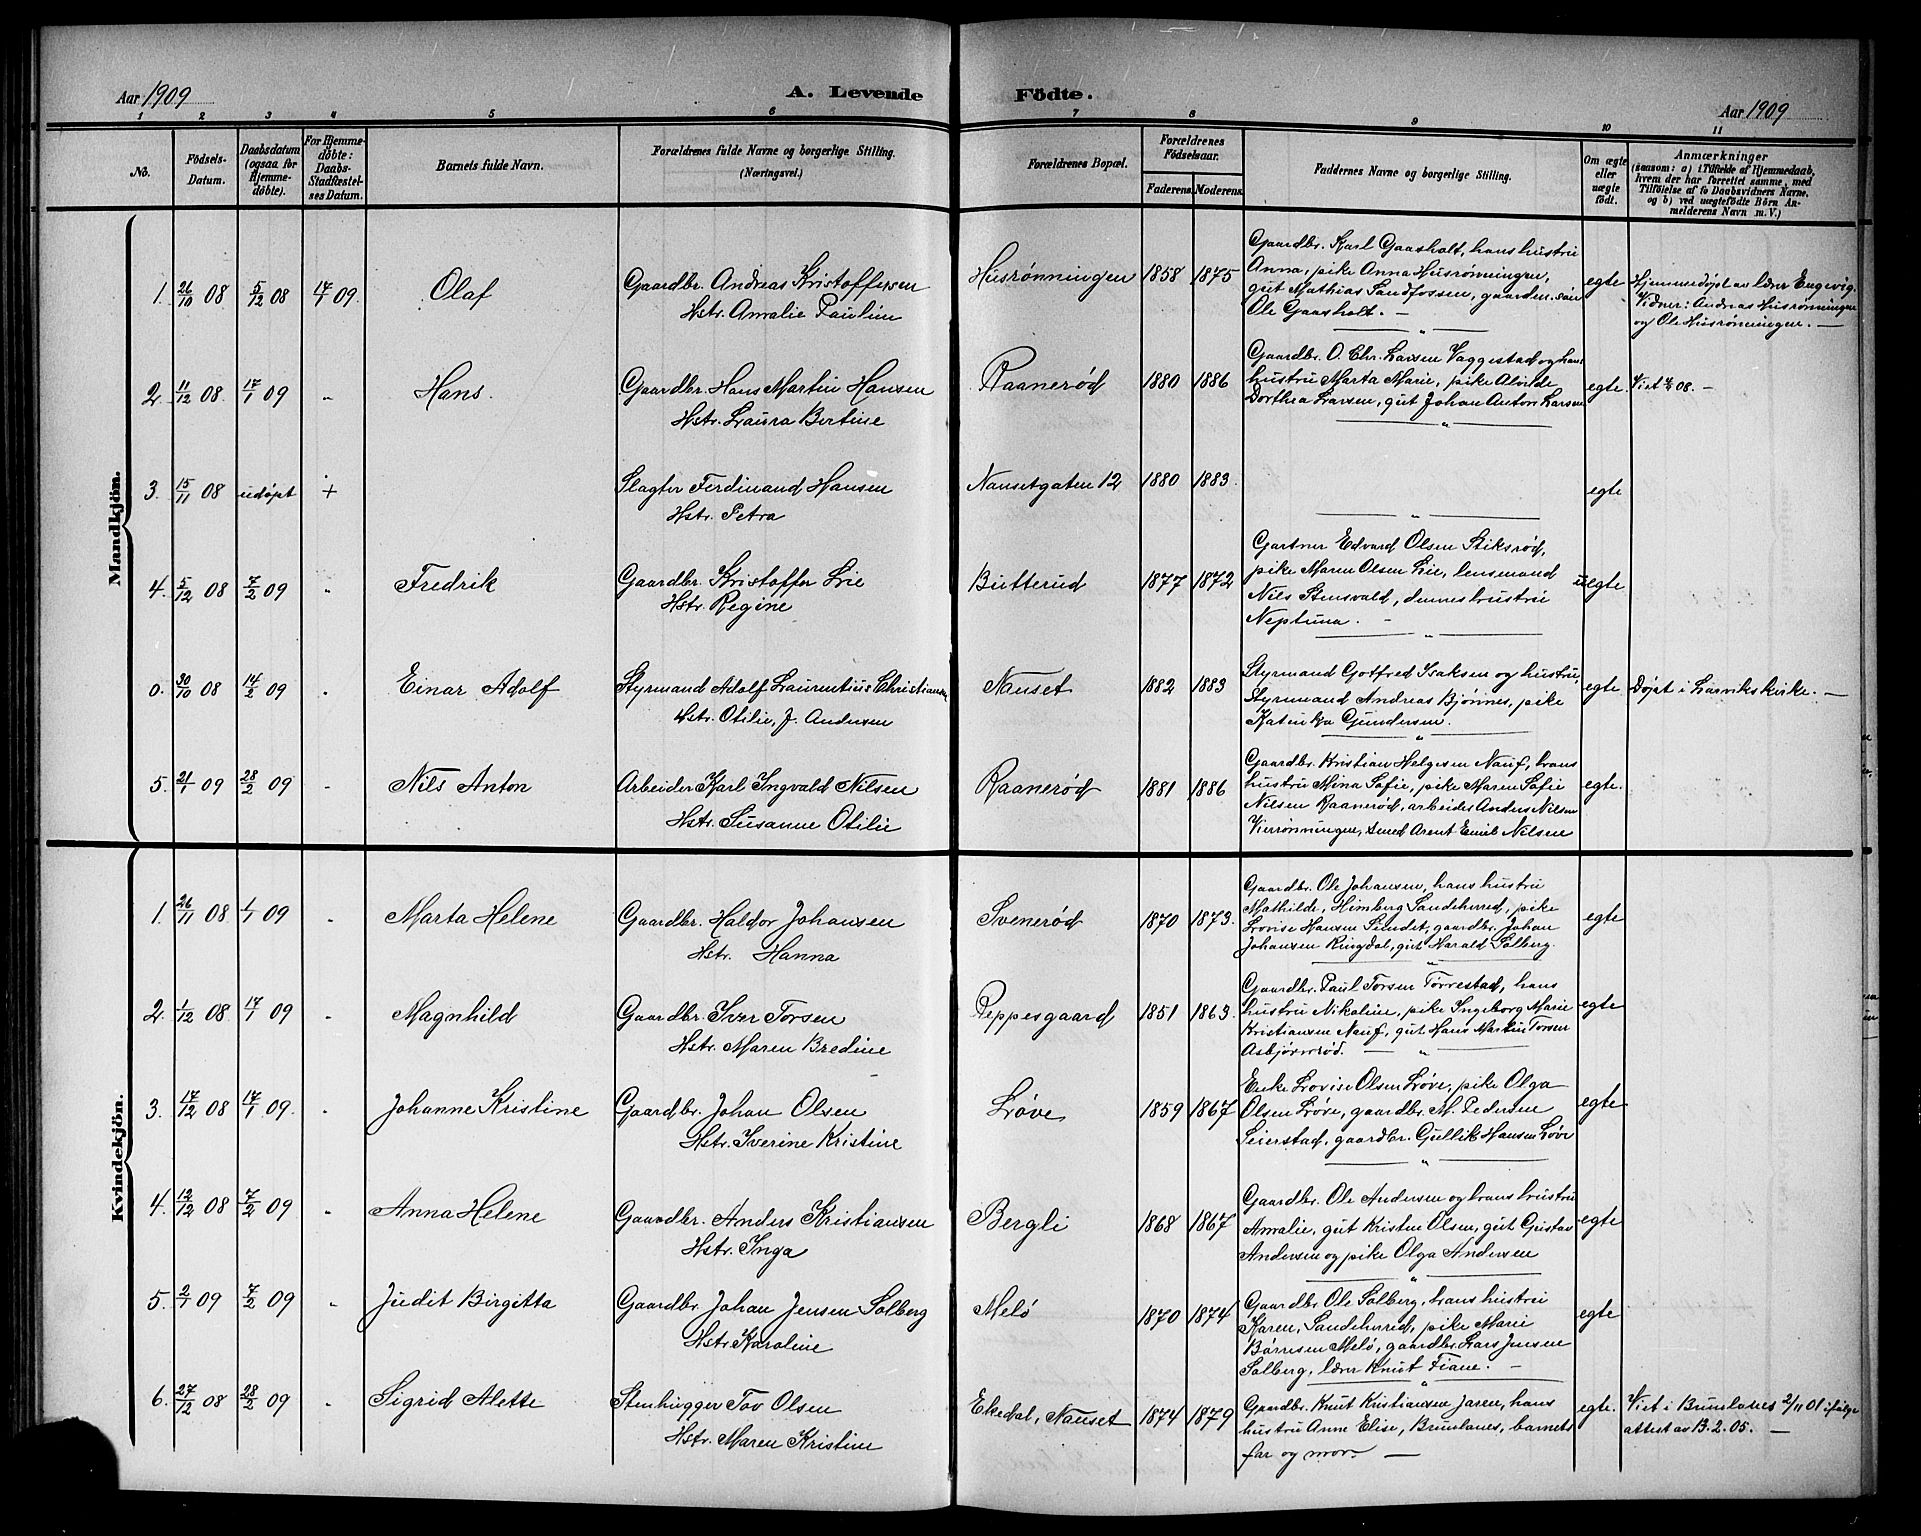 Aar 1909
A. Levende Födte.
Aar 1909
1 2 3 4 5 6 7 8 9 10 11
No.
Födsels-
Datum.
Daabsdatum
(ogsaa for
Hjemme-
döbte).
For Hjemme-
döbte:
Daabs-
Stadfæstel-
ses Datum.
Barnets fulde Navn.
Forældrenes fulde Navne og borgerlige Stilling.
(Næringsvei.)
Forældrenes Bopæl.
Forældrenes
Födselsaar.
Faderens. Moderens.
Faddernes Navne og borgerlige Stilling.
Om ægte
eller
uægte
födt.
Anmærkninger
(saasom: a) i Tilfælde af Hjemmedaab,
hvem der har forrettet samme, med
Tilföielse af to Daabsvidners Navne.
og b) ved uægtefödte Börn An-
melderens Navn m. V.)
Mandkjön.
1. 26/10 08 5/12 08 17/1 09. Olaf
Gaardbr. Andreas Kristoffersen
Hstr. Amalie Pauline
Husrønningen 1858 1875
Gaardbr. Karl Gaasholt, hans hustru
Anna, pike Anna Husrønningen,
gut Mathias Sandfossen, gaardm. søn
Ole Gaasholt. —
egte
Hjemmedøpt av lærer Engevig.
Vidner: Andreas Husrønningen
og Ole Husrønningen. —
2. 11/12 08. 17/1 09 " Hans.
Gaardbr. Hans Martin Hansen
Hstr. Laura Bertine
Raanerød 1880 1886
Gaardbr. O. Chr. Larsen Vaggestad og hans
hustru Marta Marie, pike Alvilde
Dorthea Larsen, gut Johan Anton Larsen
egte. Viet 08. —
3. 15/11 08 udøpt +
Slagter Ferdinand Hansen
Hstr. Petra
Nansetgaten 12 1880 1883.
egte
4. 5/12 08 7/2 09 " Fredrik
Gaardbr. Kristoffer Lie
Hstr. Regine
Butterud 1877 1872
Gartner Edvard Olsen Stiksrød,
pike Maren Olsen Lie, lensmand
Nils Stensvald, dennes hustru
Neptuna. —
uegte
0. 30/10 08 14/2 09 " Einar Adolf
Styrmand Adolf Laurentius Christiansen
Hstr. Otilie, J. Andersen
Nanset 1882 1883
Styrmand Gotfred Isaksen og hustru,
Styrmand Andreas Bjønnes, pike
Katinka Gundersen.
egte Døpt i Larviks kirke. —
5. 21/1 09 28/2 09 " Nils Anton
Arbeider Karl Ingvald Nilsen
Hstr. Susanne Otilie
Raanerød 1881 1886
Gaardbr. Kristian Helgesen Nauf, hans
hustru Mina Sofie, pike Maren Sofie
Nilsen Raanerød, arbeider Anders Nilsen
Vierrønningen, smed Arent Emil Nilsen
egte.
Kvindekjön.
1. 26/11 08 1/1 09 " Marta Helene
Gaardbr. Haldor Johansen
Hstr. Hanna
Svenerød 1870 1873.
Gaardbr. Ole Johansen, hans hustru
Mathilde, Himberg Sandeherred, pike
Lovise Hansen Sundet, gaardbr. Johan
Johansen Ringdal, gut Harald Solberg.
egte
2. 1/12 08. 17/1 09 " Magnhild
Gaardbr. Iver Torsen
Hstr. Maren Bredine
Peppesgaard 1851 1863.
Gaardbr. Paul Torsen Torrestad, hans
hustru Nikoline, pike Ingeborg Marie
Kristiansen Nauf, gut Hans Martin Torsen
Asbjørnrød. —
egte
3. 17/12 08 17/1 09. " Johanne Kristine
Gaardbr. Johan Olsen
Hstr. Iverine Kristine
Løve 1859 1867
Enke Lovise Olsen Løve, pike Olga
Olsen Løve, gaardbr. M. Pedersen
Seierstad, gaardbr. Gullik Hansen Løve
egte
4. 12/12 08 7/2 09 " Anna Helene
Gaardbr. Anders Kristiansen
Hstr. Inga
Bergli 1868 1867
Gaardbr. Ole Andersen og hans hustru
Amalie, gut Kristen Olsen, gut Gustav
Andersen og pike Olga Andersen
egte
5. 2/1 09 7/2 09 " Judit Birgitta
Gaardbr. Johan Jensen Solberg
Hstr. Karoline
Melö 1870 1874
Gaardbr. Ole Solberg, hans hustru
Karen, Sandeherred, pike Marie
Børresen Melö, gaardbr. Lars Jensen
Solberg, lærer Knut Fiane. —
egte
6. 27/12 08 28/2 09 " Sigrid Alette
Stenhugger Tov Olsen
Hstr. Maren Kristine
Ekedal, Nanset 1874 1879
Gaardbr. Knut Kristiansen Jaren, hans
hustru Anne Elise, Brunlanes, barnets
far og mor. —
egte.
Viet i Brunlanes 2/11 01 ifølge
attest av 13.2.05. —